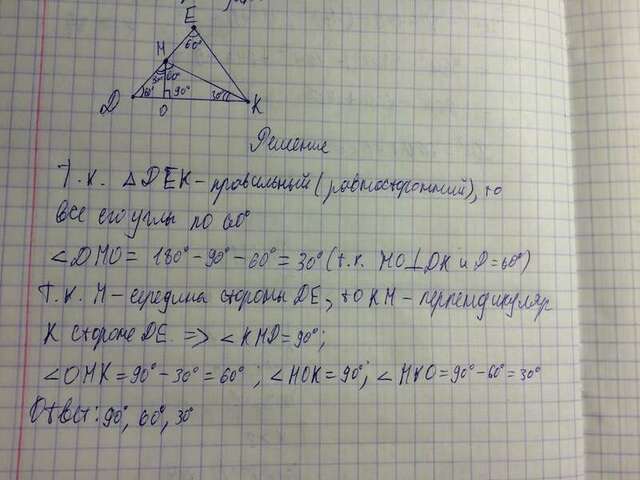 E
60°
M
30° 60°
D 60° 90° 30° K
O
Решение
Т.к. △DEK - правильный (равносторонний), то
все его углы по 60°
∠DMO = 180° - 90° - 60° = 30° (т.к. MO⊥DK и D = 60°)
Т.к. M - середина стороны DE, то KM - перпендикуляр
к стороне DE. => ∠KMD = 90°;
∠OMK = 90° - 30° = 60°; ∠MOK = 90°; ∠MKO = 90° - 60° = 30°
Ответ: 90°, 60°, 30°